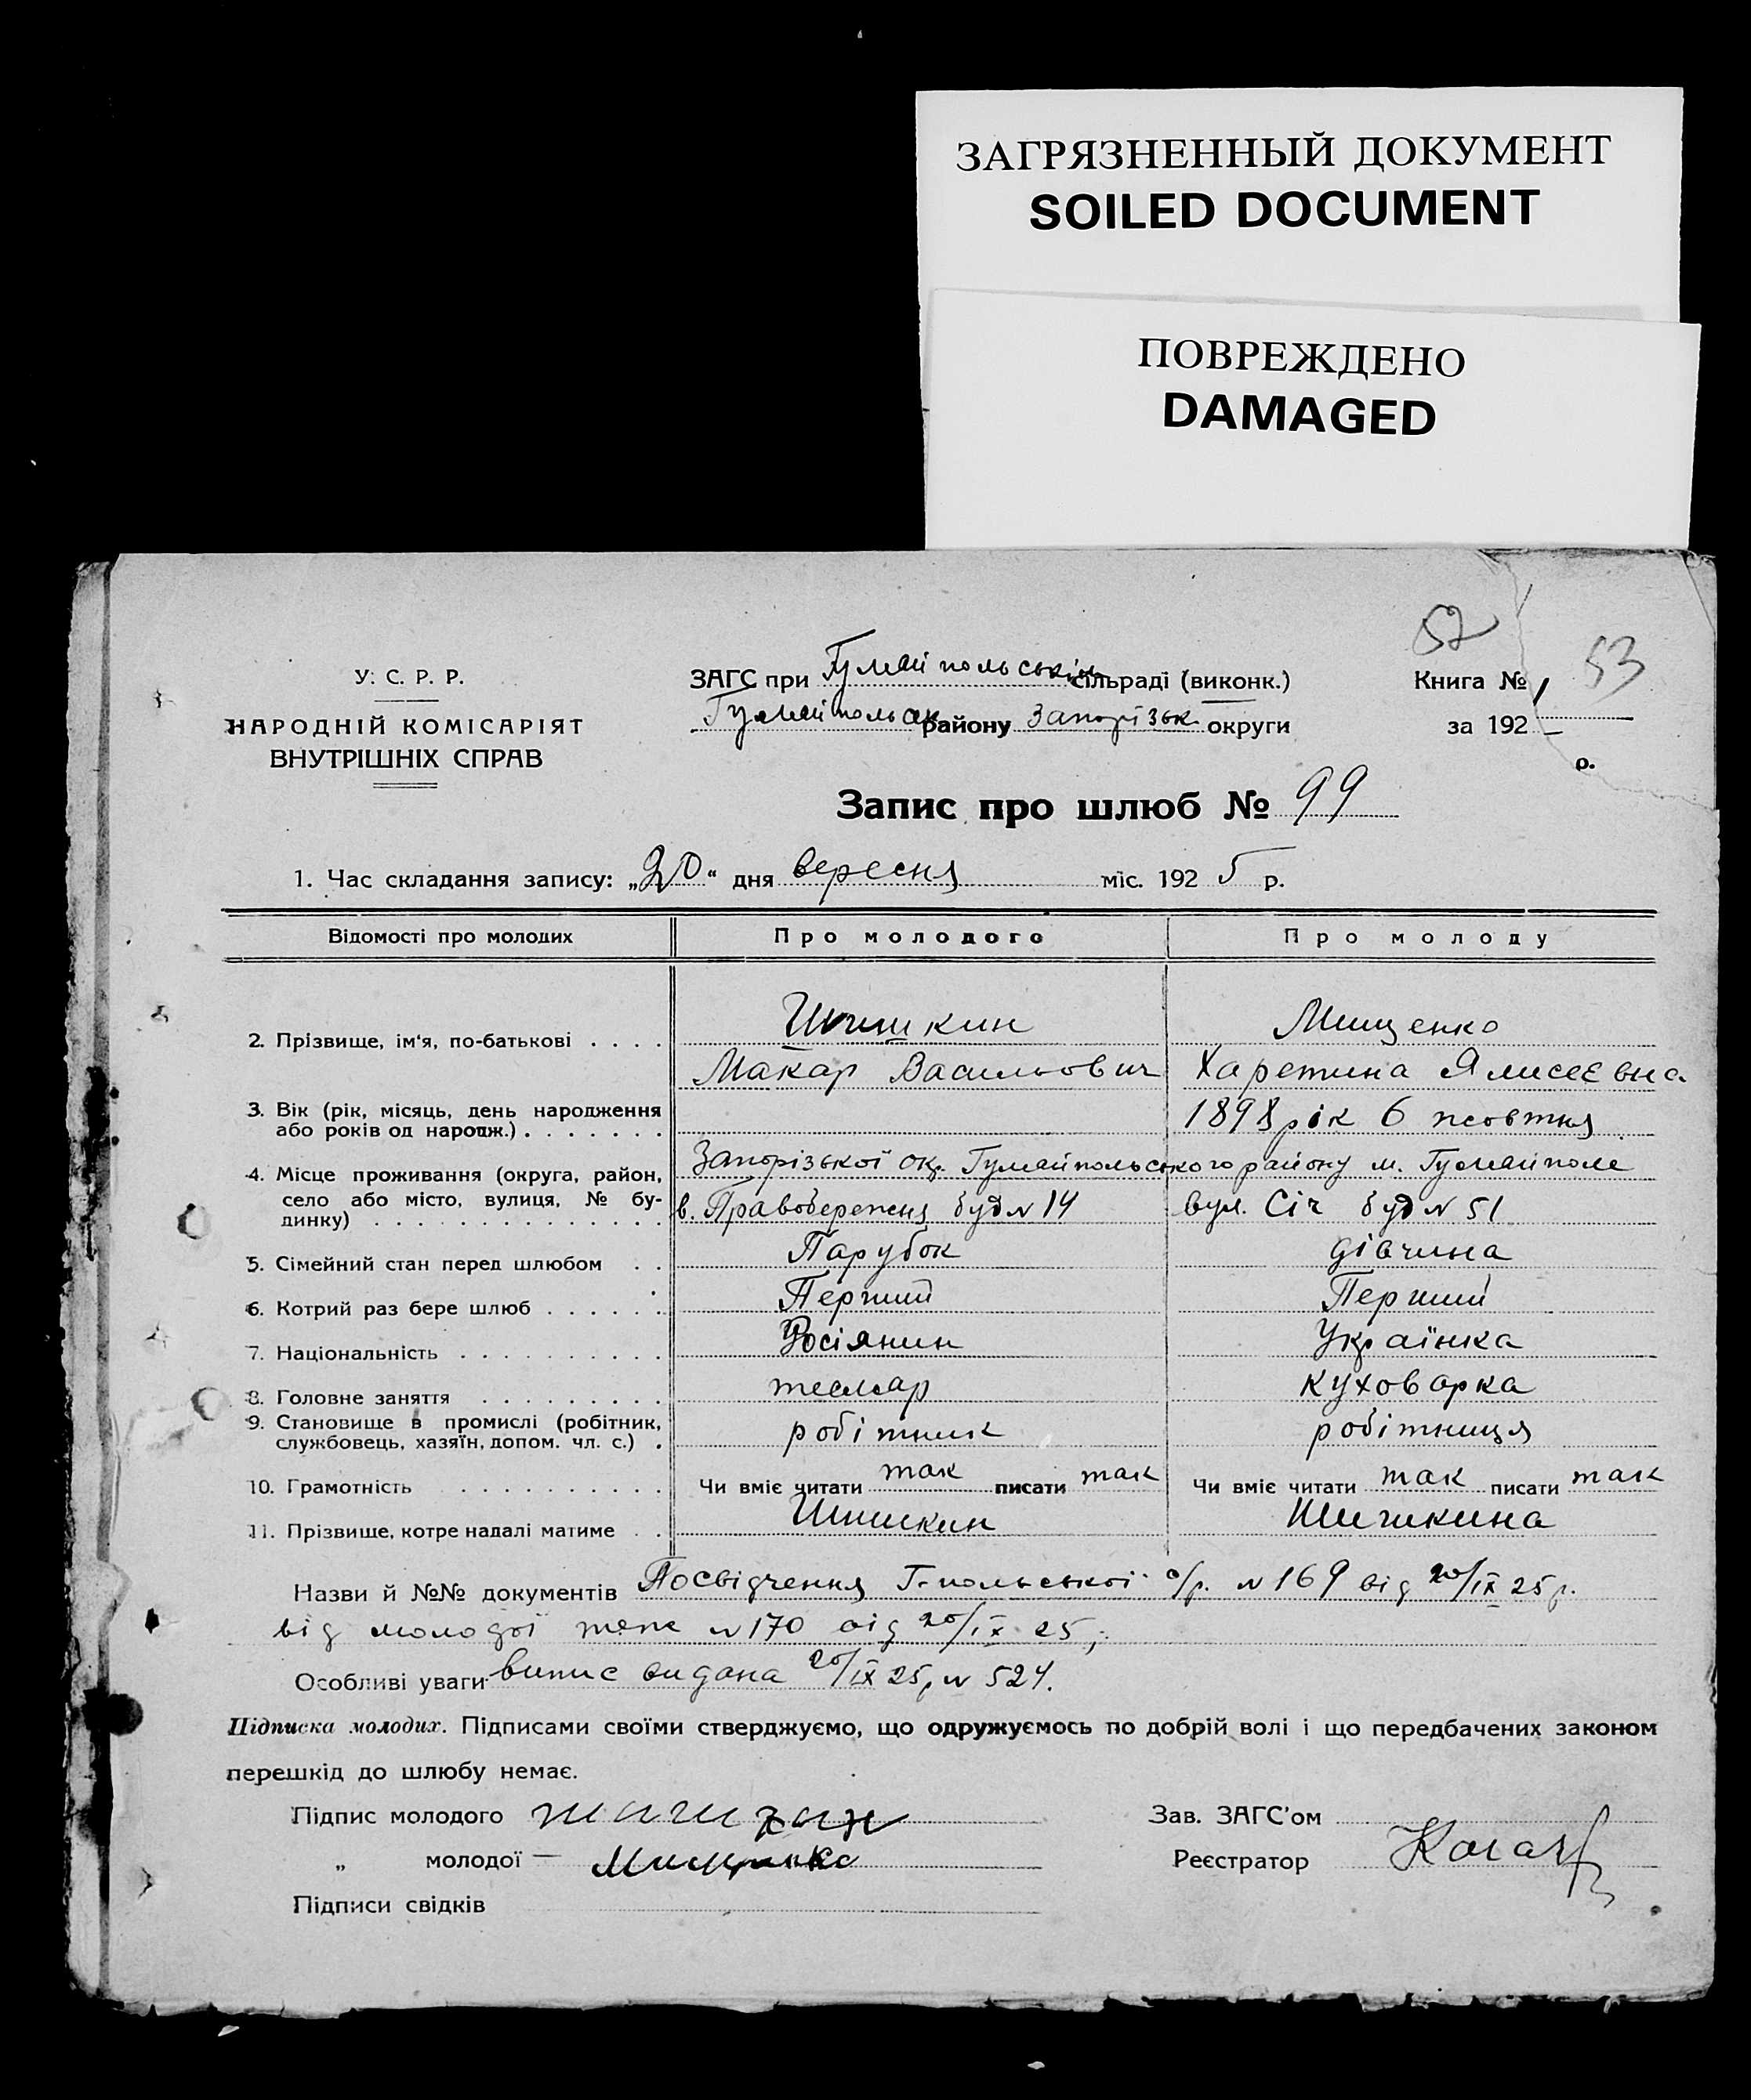 ЗАГРЯЗНЕННЫЙ ДОКУМЕНТ
SOILED DOCUMENT
ПОВРЕЖДЕНО
DAMAGED
52
53
У. С. Р. Р.
НАРОДНІЙ КОМІСАРІЯТ
ВНУТРІШНІХ СПРАВ
ЗАГС при Гуляйпольськім сільраді (виконк.)
Гуляйпольск району Запорізьк. округи
Книга № 1
за 192
р.
Запис про шлюб № 99
1. Час складання запису: „20“ дня вересня міс. 1925 р.
Відомості про молодих Про молодого Про молоду
2. Прізвище, ім'я, по-батькові . . . . Шишкин Мищенко
Макар Васильович Харетина Ялисеєвна
3. Вік (рік, місяць, день народження або років од народж.) . . . . . . . 1898 рік 6 жовтня
4. Місце проживання (округа, район, село або місто, вулиця, № будинку) . . . . Запорізької окр. Гуляйпольського району м. Гуляйполе
в. Правобережня буд № 14 вул. Січ буд № 51
5. Сімейний стан перед шлюбом . . Парубок дівчина
6. Котрий раз бере шлюб . . . . . . Перший Перший
7. Національність . . . . . . . . . . Росіянин Українка
8. Головне заняття . . . . . . . . . тесляр куховарка
9. Становище в промислі (робітник, службовець, хазяїн, допом. чл. с.) . робітник робітниця
10. Грамотність . . . . . . . . . . Чи вміє читати так писати так Чи вміє читати так писати так
11. Прізвище, котре надалі матиме . . Шишкин Шишкина
Назви й №№ документів Посвідчення Г-польської с/р. № 169 від 20/IX 25 р.
від молодої теж № 170 від 20/IX 25,
Особливі уваги випис видана 20/IX 25 р № 524.
Підписка молодих. Підписами своїми стверджуємо, що одружуємось по добрій волі і що передбачених законом
перешкід до шлюбу немає.
Підпис молодого Шишкин Зав. ЗАГС'ом
„ молодої — Мищенко Реєстратор
Підписи свідків